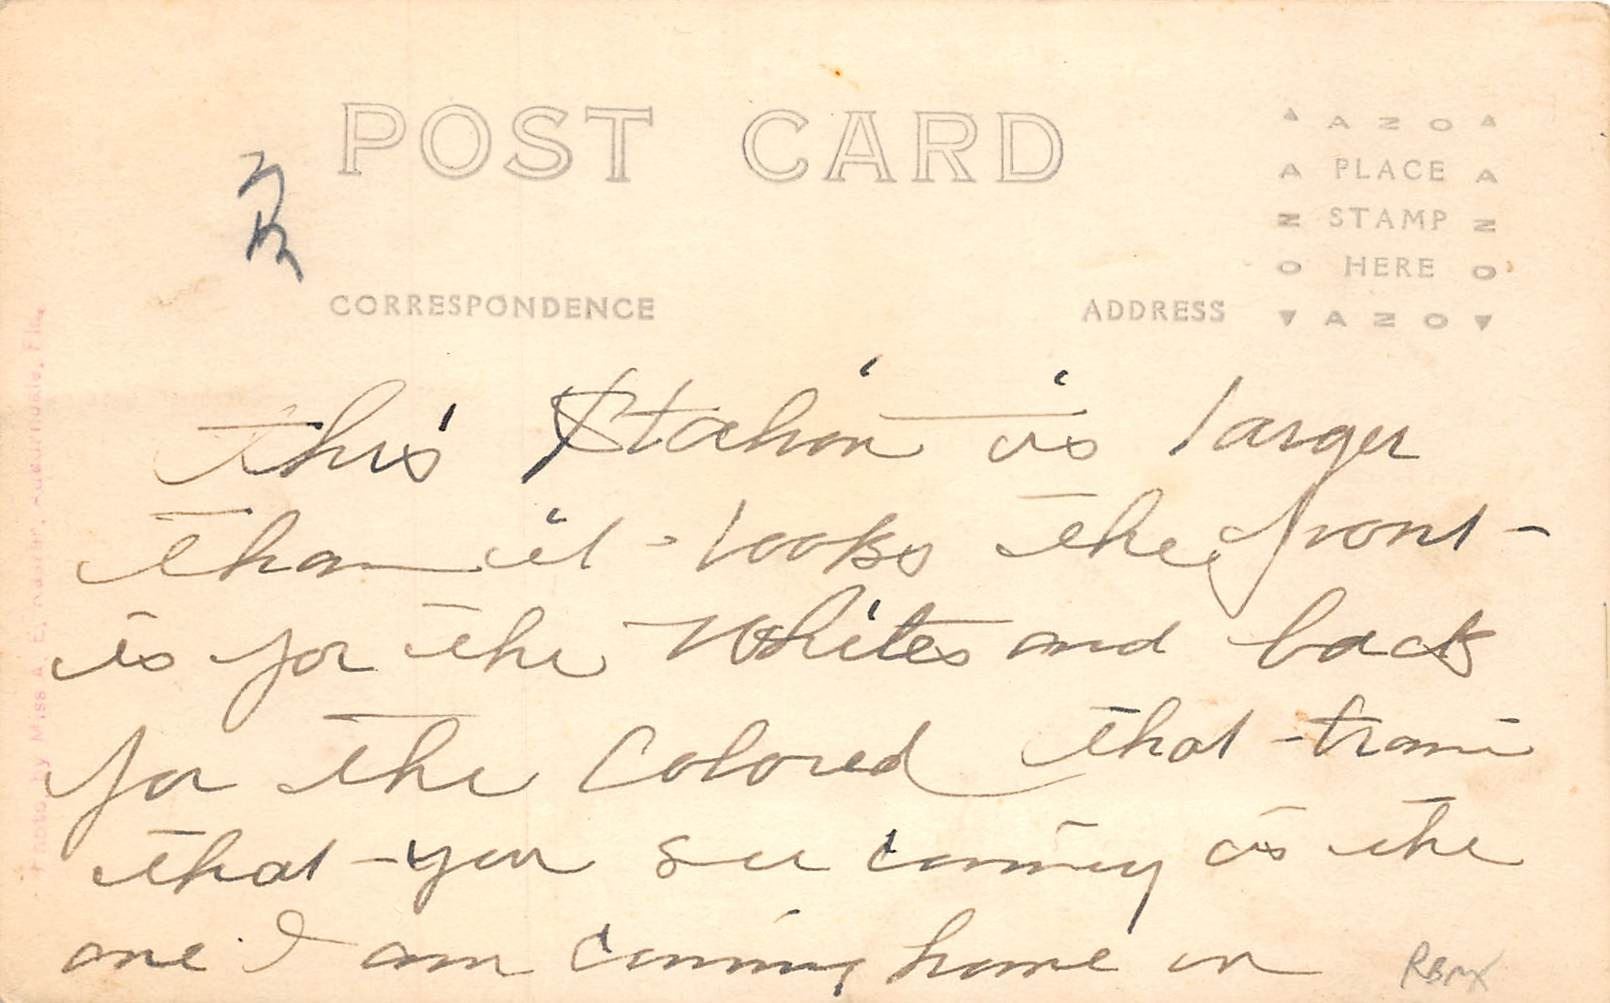 POST CARD
AZO
PLACE
STAMP
HERE
AZO
CORRESPONDENCE
ADDRESS
this Station is larger
than it looks the front
is for the Whites and back
for the Colored that train
that you see coming is the
one I am coming home on
RBMX
Photo by Miss A. E. Fla.